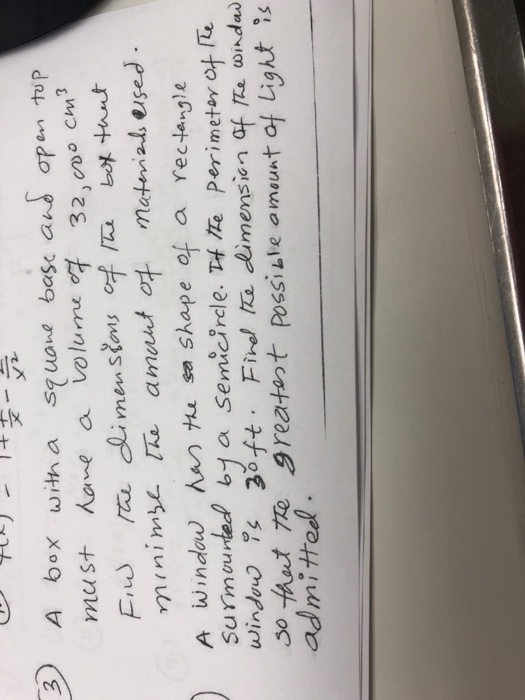 f(x) = 1 + 1/x - 1/x²
3) A box with a square base and open top
must have a volume of 32,000 cm³
Find the dimensions of the box that
minimze the amount of materials used.
) A window has the shape of a rectangle
surmounted by a semicircle. If the perimeter of the
window is 30 ft. Find the dimension of the window
so that the greatest possible amount of light is
admitted.